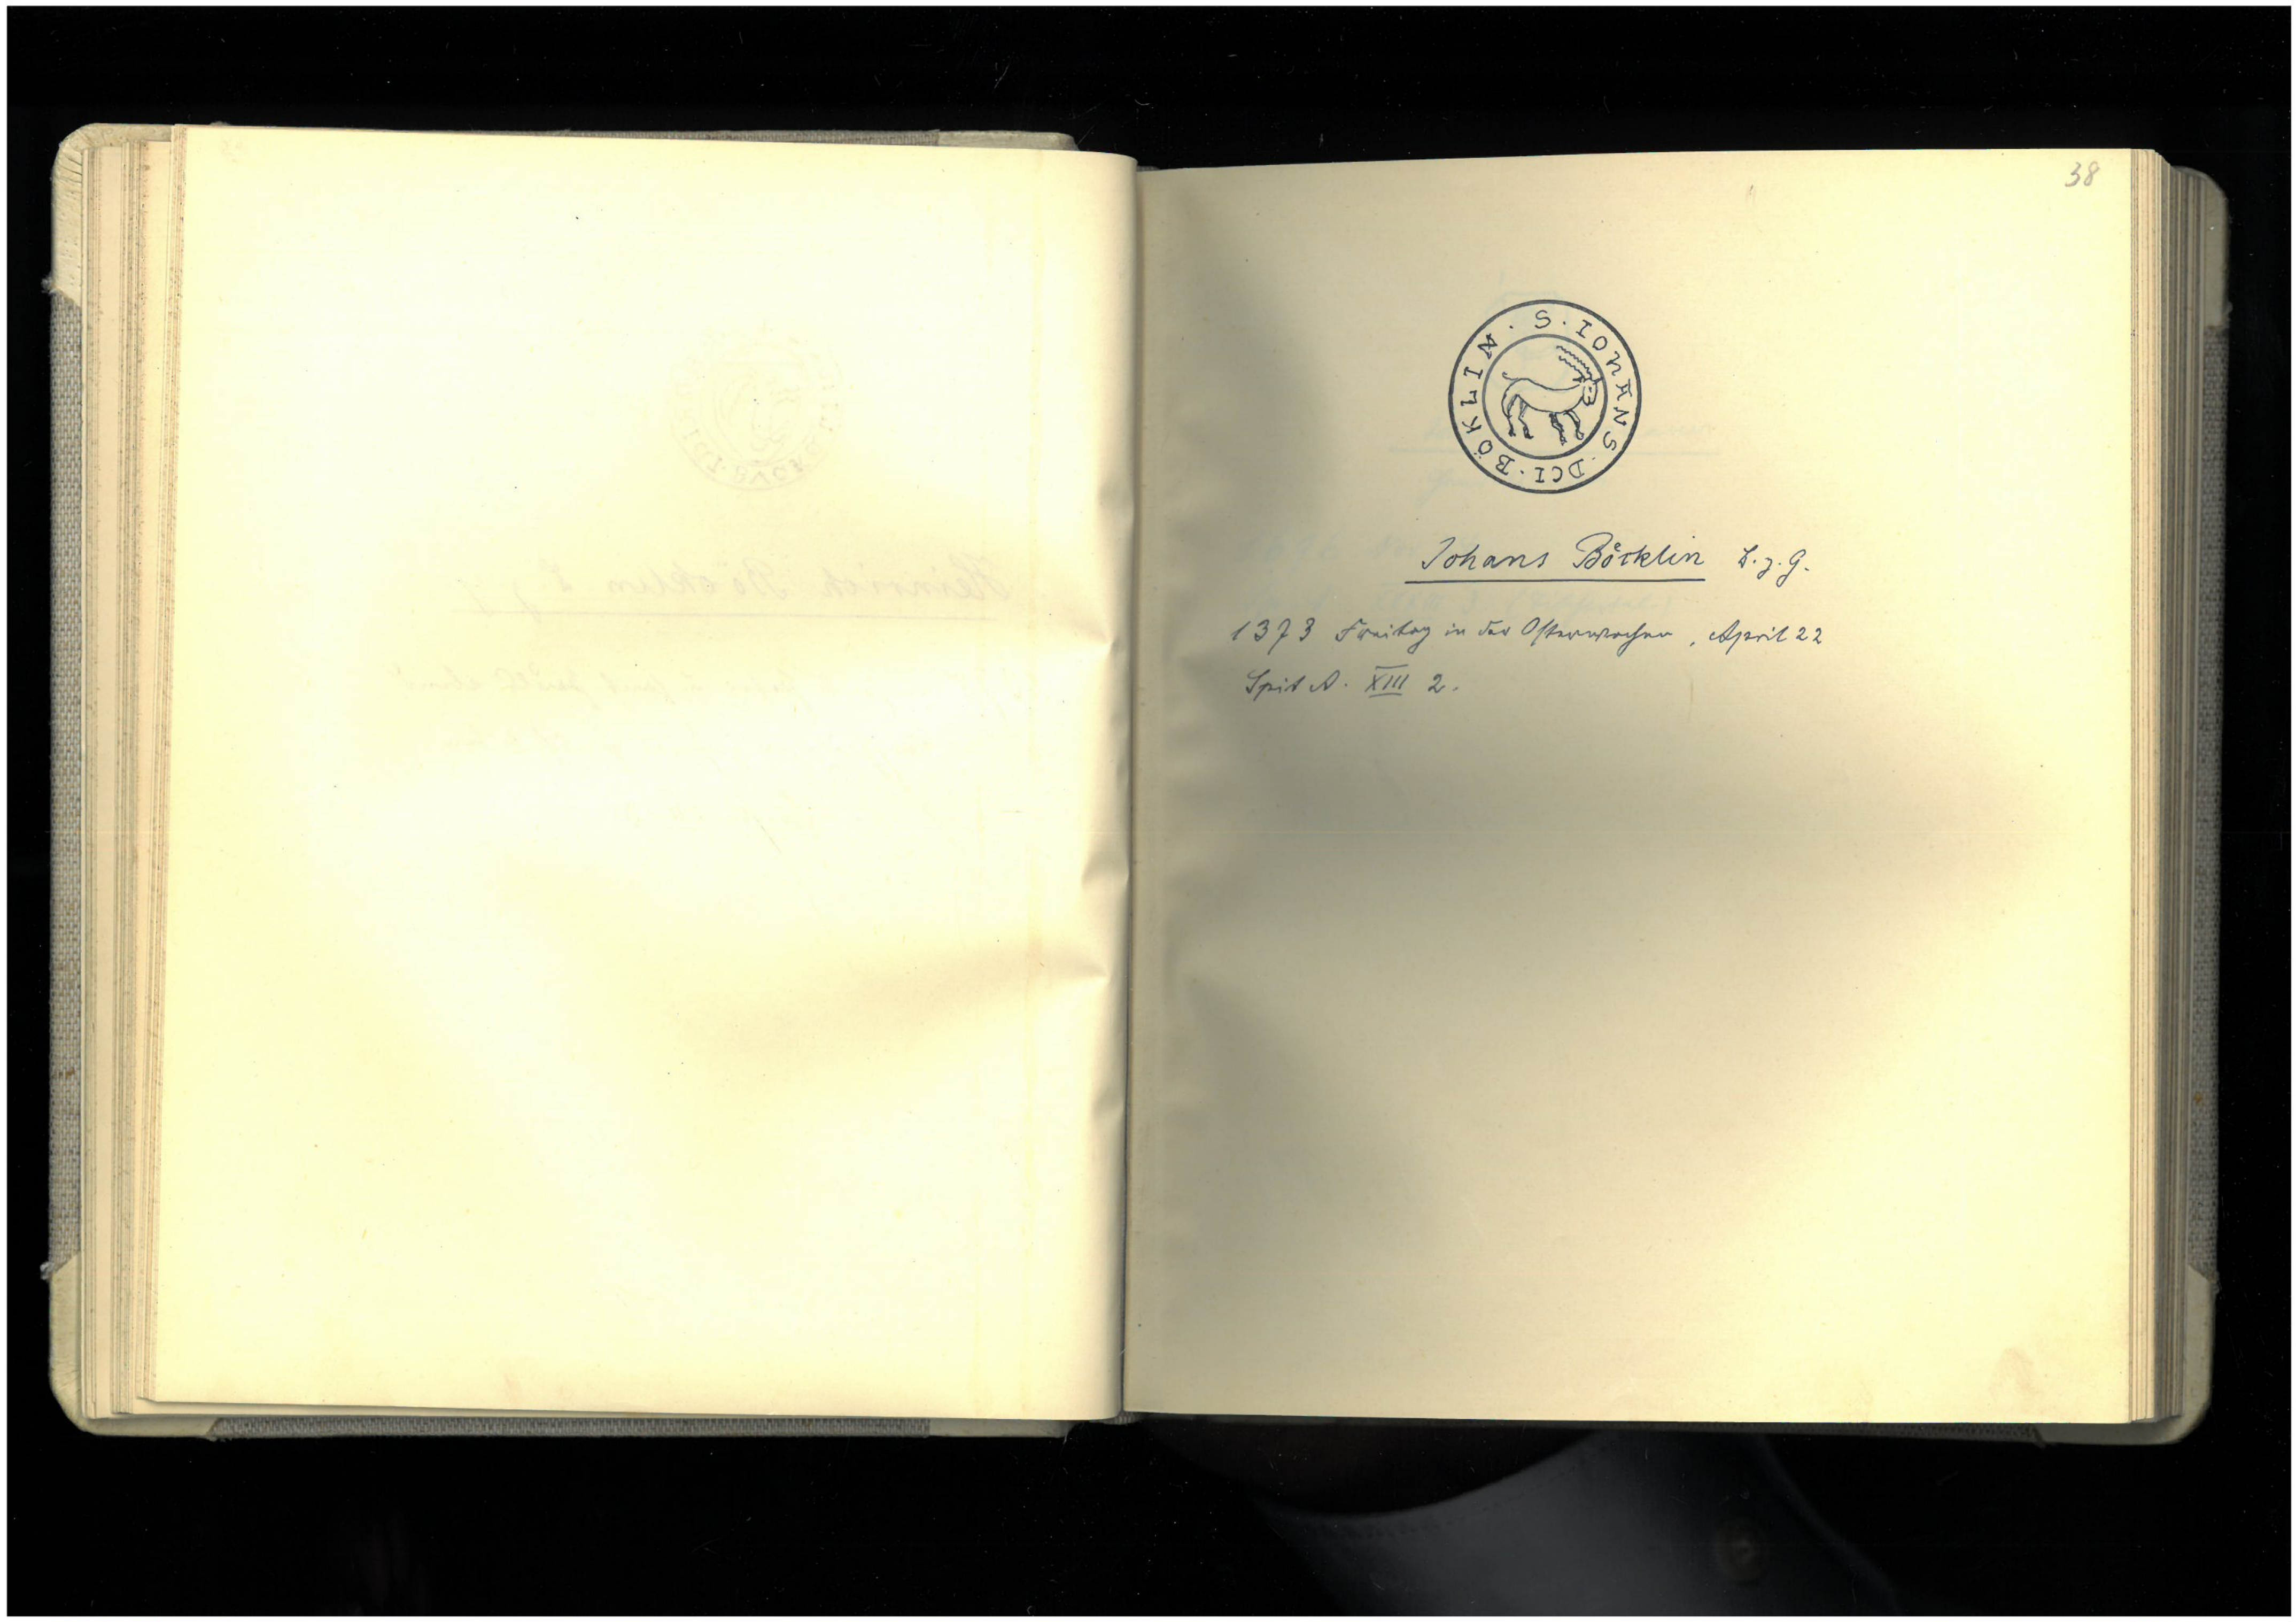 38
S · IOHANS · DCI · BÖKLIN ·
Johans Böcklin L. z. G.
1373 Freitag in der Osterwochen, April 22
Spit A. XIII 2.